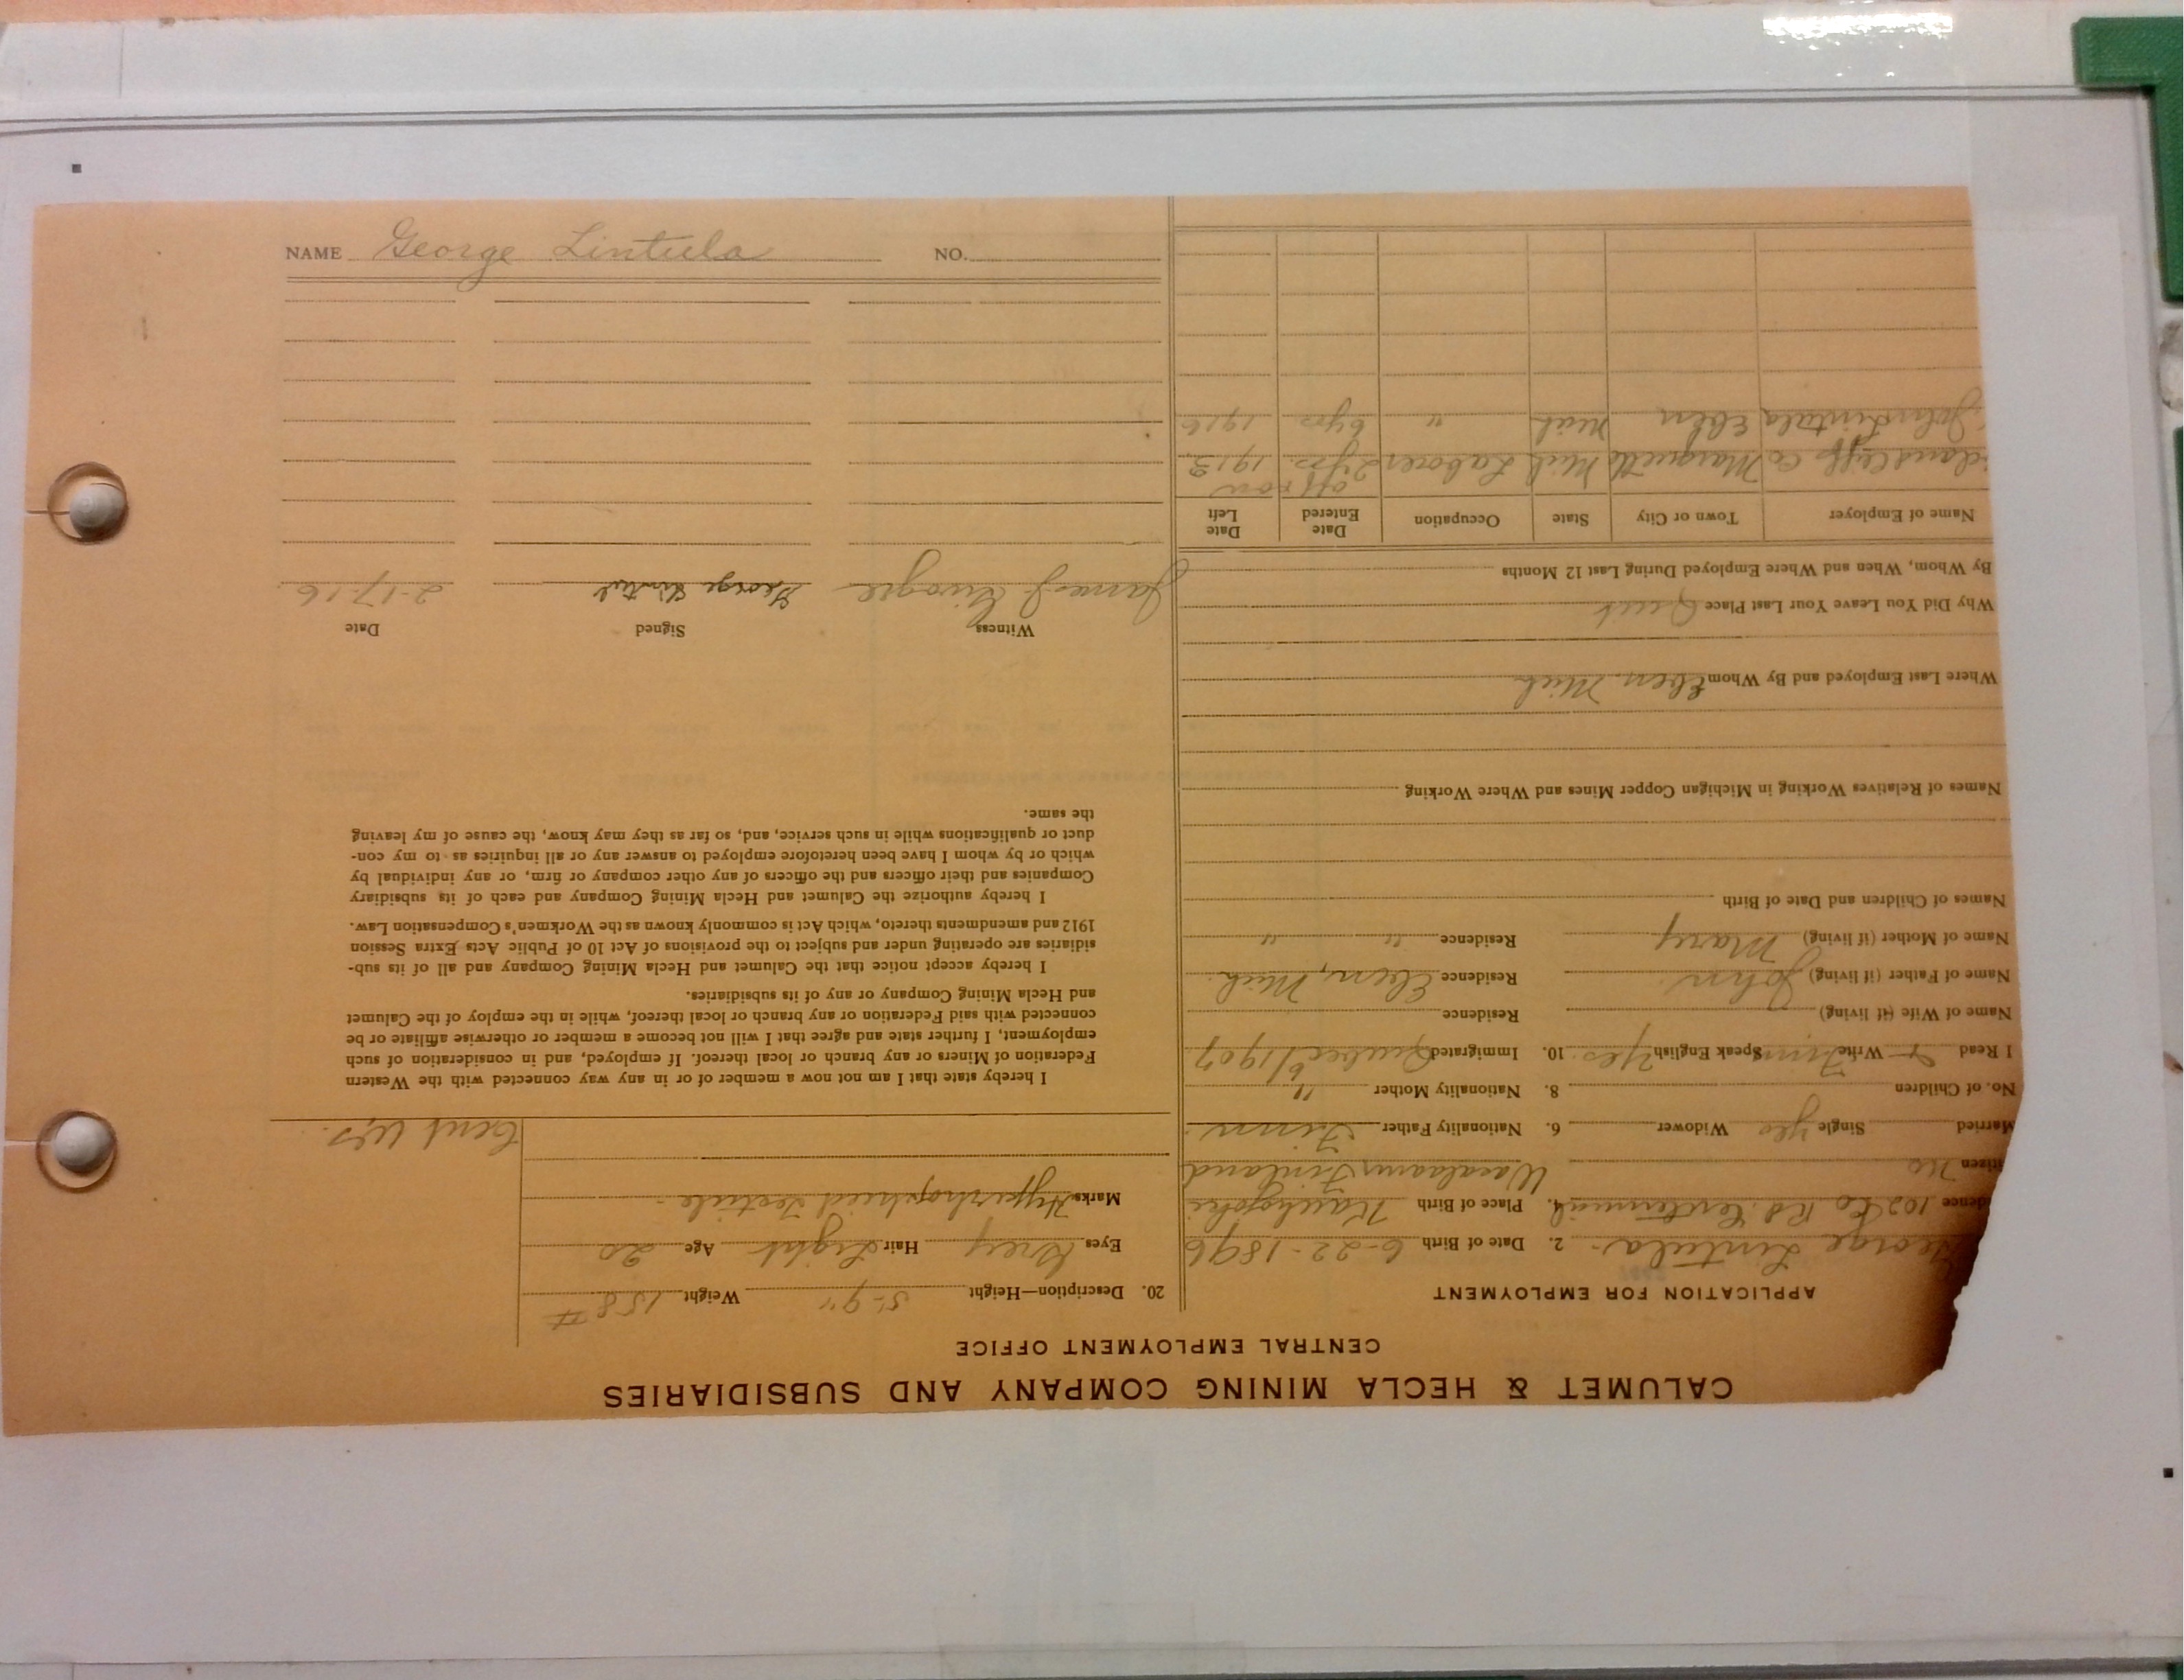 CALUMET & HECLA MINING COMPANY AND SUBSIDIARIES
CENTRAL EMPLOYMENT OFFICE
APPLICATION FOR EMPLOYMENT
George Lintula 2. Date of Birth 6-22-1896
dence 102 Co Rd. Centennial 4. Place of Birth Kauhajoki
Waasalaani Finland
tizen No
Married Single Yes Widower 6. Nationality Father Finn
No. of Children 8. Nationality Mother "
I Read & Write Finn Speak English Yes 10. Immigrated Quebec 6/1907
Name of Wife (if living) Residence
Name of Father (if living) John Residence Eben, Mich.
Name of Mother (if living) Mary Residence " "
Names of Children and Date of Birth
Names of Relatives Working in Michigan Copper Mines and Where Working
Where Last Employed and By Whom Eben Mich
Why Did You Leave Your Last Place Quit
By Whom, When and Where Employed During Last 12 Months
Name of Employer Town or City State Occupation Date Entered Date Left
off & on
Cliff Co Marquette Mich Laborer 2 yrs. 1913
John Lintula Eben Mich " 6 yrs 1916
20. Description—Height 5-9" Weight 158#
Eyes Grey Hair Light Age 20
Marks Hypertrophied Testicle
Cent Wo.
I hereby state that I am not now a member of or in any way connected with the Western
Federation of Miners or any branch or local thereof. If employed, and in consideration of such
employment, I further state and agree that I will not become a member or otherwise affiliate or be
connected with said Federation or any branch or local thereof, while in the employ of the Calumet
and Hecla Mining Company or any of its subsidiaries.
I hereby accept notice that the Calumet and Hecla Mining Company and all of its sub-
sidiaries are operating under and subject to the provisions of Act 10 of Public Acts Extra Session
1912 and amendments thereto, which Act is commonly known as the Workmen's Compensation Law.
I hereby authorize the Calumet and Hecla Mining Company and each of its subsidiary
Companies and their officers and the officers of any other company or firm, or any individual by
which or by whom I have been heretofore employed to answer any or all inquiries as to my con-
duct or qualifications while in such service, and, so far as they may know, the cause of my leaving
the same.
Witness Signed Date
James J. George Lintul 2-17-16.
NAME George Lintula NO.